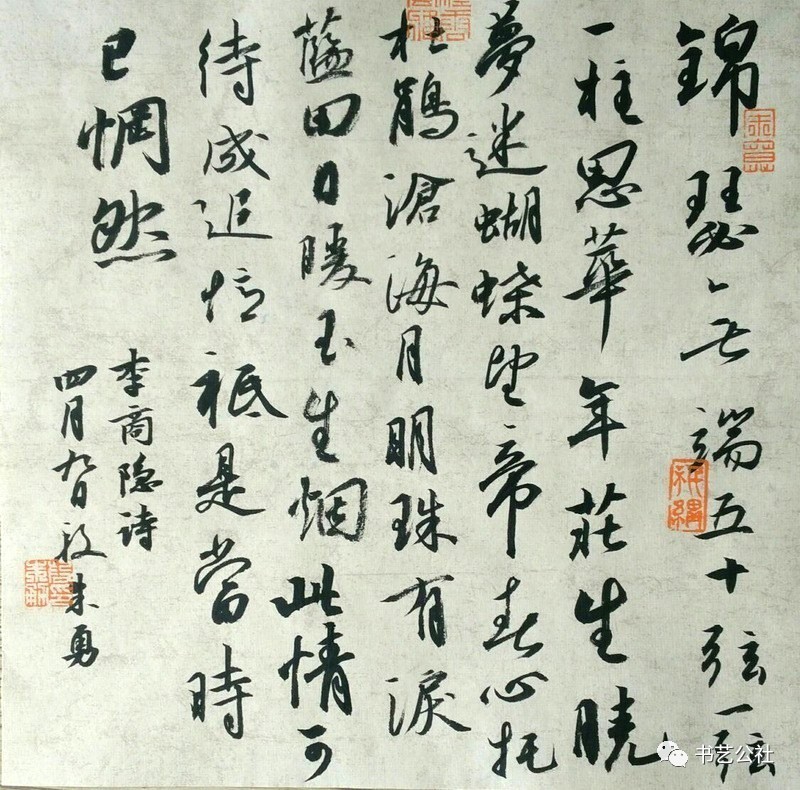 錦瑟无端五十弦一弦
一柱思華年莊生曉
夢迷蝴蝶望帝春心托
杜鵑滄海月明珠有淚
藍田日暖玉生烟此情可
待成追憶祇是當時
已惘然
李商隐诗
四月九日夜朱勇
书艺公社